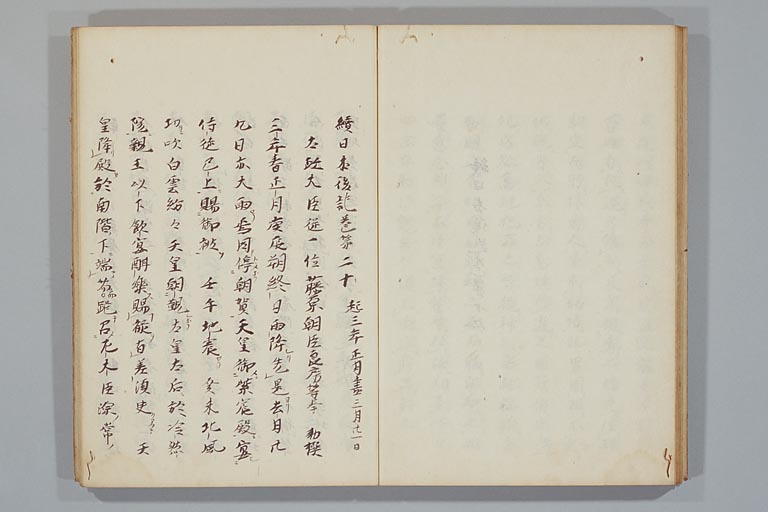 續日本後記卷第二十 起三年正月盡三月廿一日
太政大臣從一位藤原朝臣良房等奉 勅撰
三年春正月庚辰朔終日雨降先是去月廿
九日亦大雨為因停朝賀天皇御紫宸殿宴
侍從已上賜御被 壬午地震 癸未北風
切吹白雲紛々天皇朝覲太皇太后於冷然
院親王以下飲宴酣樂賜祿有差須史 天
皇降殿於南階下端笏跪召左大臣源 常